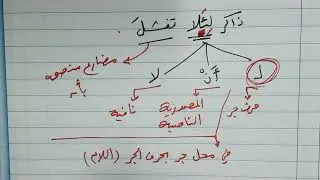 ذاكر لئلا تفشلَ.
لـ أنْ لا مضارع منصوب
بأن
حرف جر المصدرية نافية
الناصبة
في محل جر بحرف الجر (اللام)